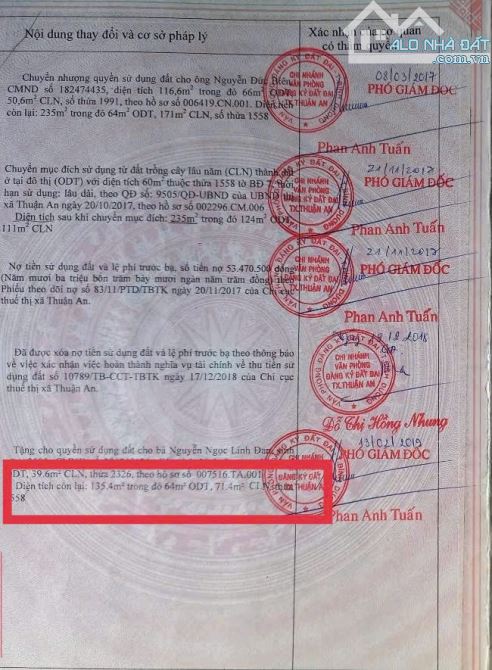 Nội dung thay đổi và cơ sở pháp lý
Xác nhận của cơ quan
có thẩm quyền
ALO NHÀ ĐẤT
.com.vn
Chuyển nhượng quyền sử dụng đất cho ông Nguyễn Đức Biên,
CMND số 182474435, diện tích 116,6m² trong đó 66m² ODT,
50,6m² CLN, thửa 1991, theo hồ sơ 006419.CN.001. Diện tích
còn lại: 235m² trong đó 64m² ODT, 171m² CLN, số thửa 1558
CHI NHÁNH
VĂN PHÒNG
ĐĂNG KÝ ĐẤT ĐAI
TX.THUẬN AN
08/03/2017
PHÓ GIÁM ĐỐC
Phan Anh Tuấn
Chuyển mục đích sử dụng từ đất trồng cây lâu năm (CLN) thành đất
ở tại đô thị (ODT) với diện tích 60m² thuộc thửa 1558 tờ BĐ 7, thời
hạn sử dụng: lâu dài, theo QĐ số: 9505/QĐ-UBND của UBND thị
xã Thuận An ngày 20/10/2017, theo hồ sơ số 002296.CM.006
Diện tích sau khi chuyển mục đích: 235m² trong đó 124m² ODT,
111m² CLN
CHI NHÁNH
VĂN PHÒNG
ĐĂNG KÝ ĐẤT ĐAI
TX.THUẬN AN
21/11/2017
PHÓ GIÁM ĐỐC
Phan Anh Tuấn
Nợ tiền sử dụng đất và lệ phí trước bạ, số tiền nợ 53.470.500 đồng
(Năm mươi ba triệu bốn trăm bảy mươi ngàn năm trăm đồng) theo
Phiếu theo dõi nợ số 83/11/PTD/TBTK ngày 20/11/2017 của Chi cục
thuế thị xã Thuận An.
CHI NHÁNH
VĂN PHÒNG
ĐĂNG KÝ ĐẤT ĐAI
TX.THUẬN AN
21/11/2017
PHÓ GIÁM ĐỐC
Phan Anh Tuấn
Đã được xóa nợ tiền sử dụng đất và lệ phí trước bạ theo thông báo
về việc xác nhận việc hoàn thành nghĩa vụ tài chính về thu tiền sử
dụng đất số 10789/TB-CCT-TBTK ngày 17/12/2018 của Chi cục
thuế thị xã Thuận An.
CHI NHÁNH
VĂN PHÒNG
ĐĂNG KÝ ĐẤT ĐAI
TX.THUẬN AN
2018
Đỗ Thị Hồng Nhung
Tặng cho quyền sử dụng đất cho bà Nguyễn Ngọc Linh Đan, sinh
ĐT, 39.6m² CLN, thửa 2326, theo hồ sơ số 007516.TA.001
Diện tích còn lại: 135.4m² trong đó 64m² ODT, 71.4m² CLN
558
CHI NHÁNH
ĐĂNG KÝ ĐẤT
TX.THUẬN AN
13/02/2019
PHÓ GIÁM ĐỐC
Phan Anh Tuấn